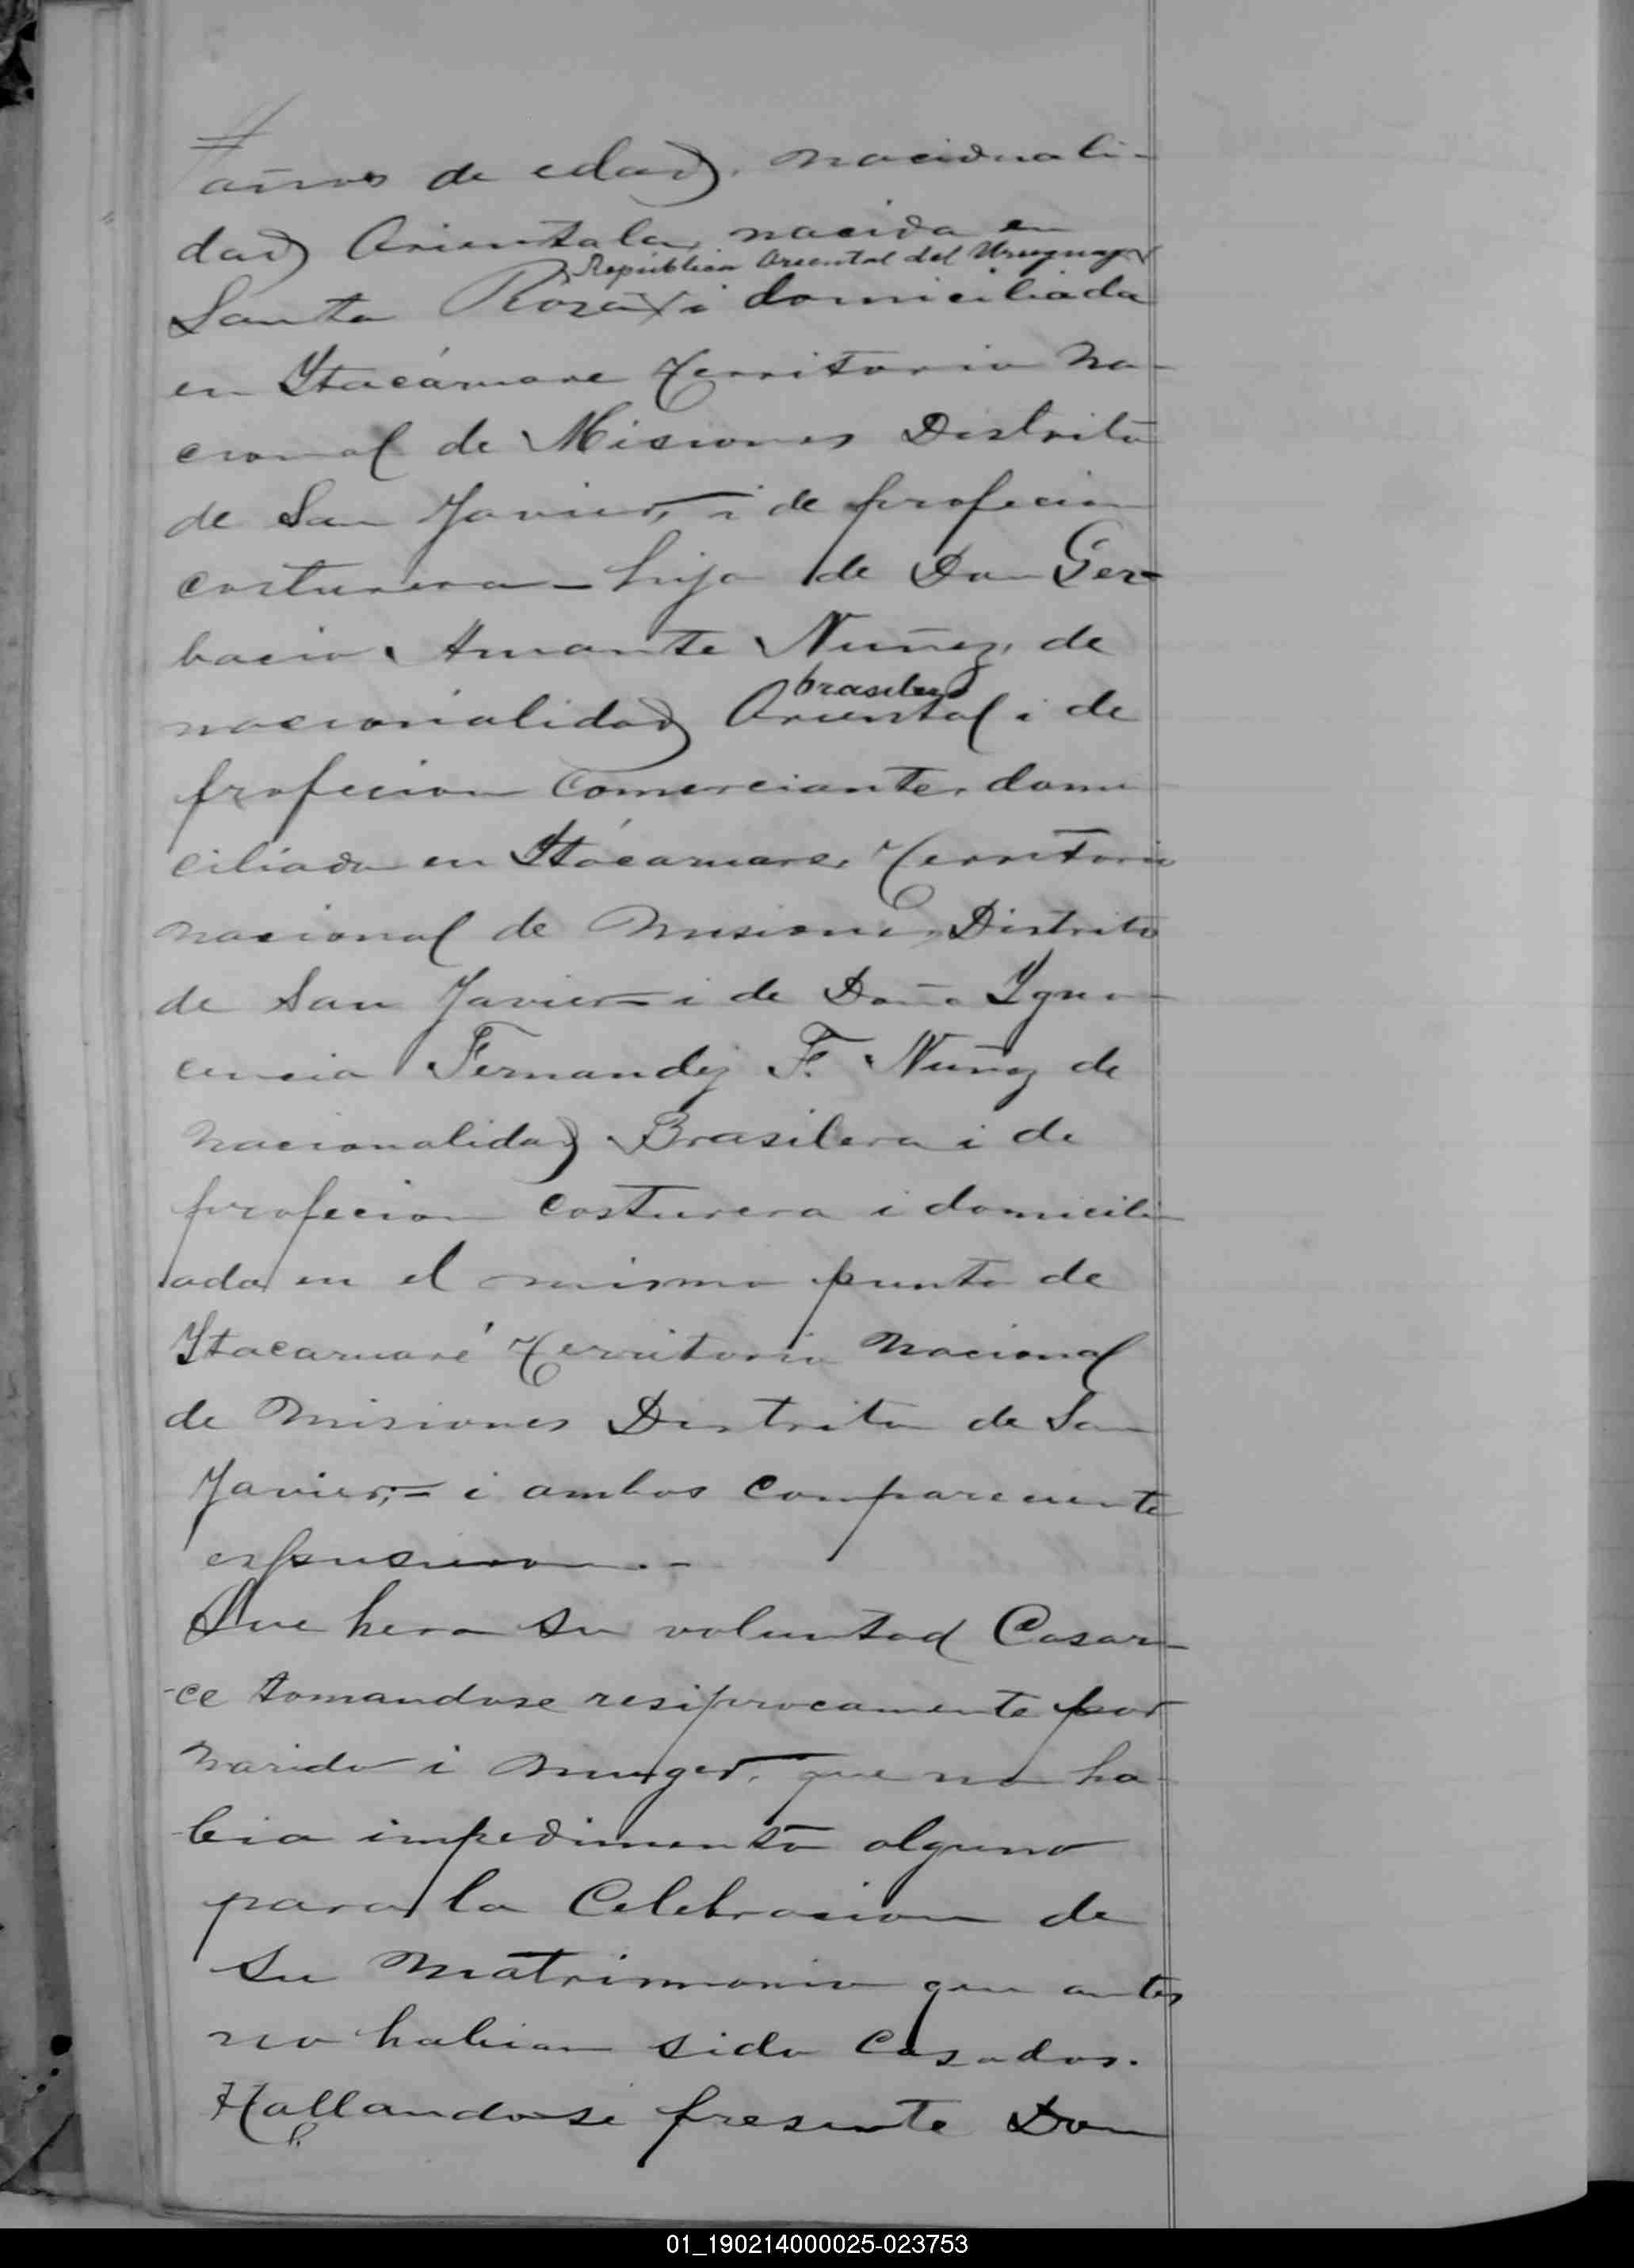 años de edad, nacionali-
dad Orientala, nacida en
República Oriental del Uruguay
Santa Rosa i domiciliada
en Ytacáruare Territorio Na-
cional de Misiones Distrito
de San Javier, i de profecion
costurera - hija de Don Ger-
bacio Amante Nuñez, de
brasilero
nacionalidad Oriental i de
profecion Comerciante, domi
ciliado en Ytácaruare, Territorio
nacional de Misiones Distrito
de San Javier - i de Doña Ygno-
cencia Fernandez F. Nuñez de
Nacionalidad Brasilera i de
profecion costurera i domicili
ada en el mismo punto de
Ytacaruaré Territorio Nacional
de Misiones Distrito de San
Javier, - i ambos comparecientes
espusieron. -
Que hera su voluntad Casar-
-ce tomandose resiprocamente por
Marido i Muger, que no ha-
bia impedimento alguno
para la Celebracion de
su Matrimonio que antes
no habian sido Casados.
Hallandose presente Don
01_190214000025-023753